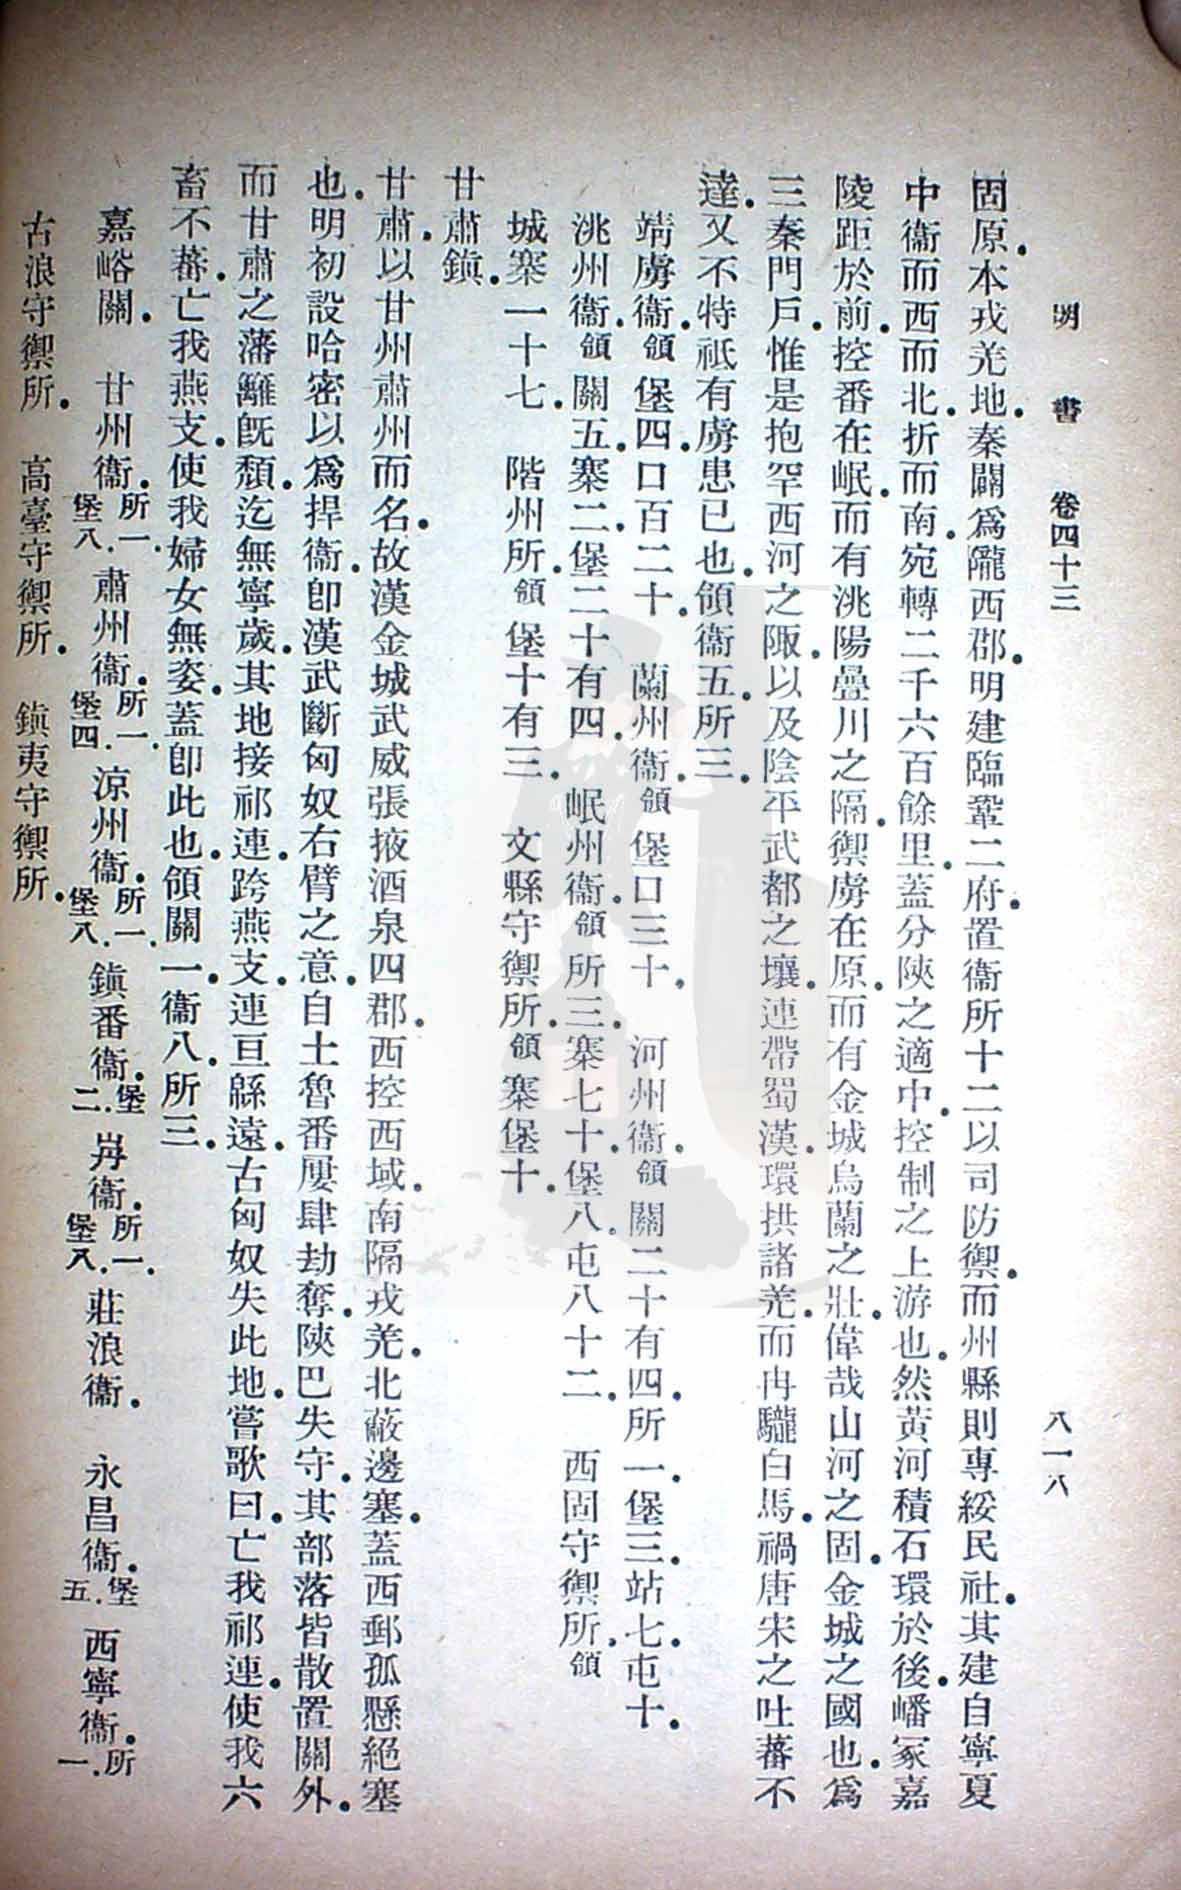 明書 卷四十三 八一八
固原.本戎羌地.秦闢爲隴西郡.明建臨鞏二府.置衞所十二以司防禦.而州縣則專綏民社.其建自寧夏
中衞而西而北.折而南.宛轉二千六百餘里.蓋分陝之適中.控制之上游也.然黃河積石環於後.嶓冢嘉
陵距於前.控番在岷.而有洮陽疊川之隔.禦虜在原.而有金城烏蘭之壯.偉哉山河之固.金城之國也.爲
三秦門戶.惟是抱罕西河之陬.以及陰平武都之壤.連帶蜀漢.環拱諸羌.而冉駹白馬.禍唐宋之吐蕃不
達.又不特祇有虜患已也.領衞五.所三.
靖虜衞.領堡四.口百二十.蘭州衞.領堡口三十.河州衞.領關二十有四.所一.堡三.站七.屯十.
洮州衞.領關五.寨二.堡二十有四.岷州衞.領所三.寨七十.堡八.屯八十二.西固守禦所.領
城寨一十七.階州所.領堡十有三.文縣守禦所.領寨堡十.
甘肅鎭.
甘肅.以甘州肅州而名.故漢金城武威張掖酒泉四郡.西控西域.南隔戎羌.北蔽邊塞.蓋西郵孤懸絕塞
也.明初設哈密以爲捍衞.卽漢武斷匈奴右臂之意.自土魯番屢肆劫奪.陝巴失守.其部落皆散置關外.
而甘肅之藩籬旣頹.迄無寧歲.其地接祁連.跨燕支.連亘緜遠.古匈奴失此地.嘗歌曰.亡我祁連.使我六
畜不蕃.亡我燕支.使我婦女無姿.蓋卽此也.領關一.衞八.所三.
嘉峪關.甘州衞.所一.堡八.肅州衞.所一.堡四.涼州衞.所一.堡八.鎭番衞.堡二.丹衞.所一.堡八.莊浪衞.永昌衞.堡五.西寧衞.所一.
古浪守禦所.高臺守禦所.鎭夷守禦所.